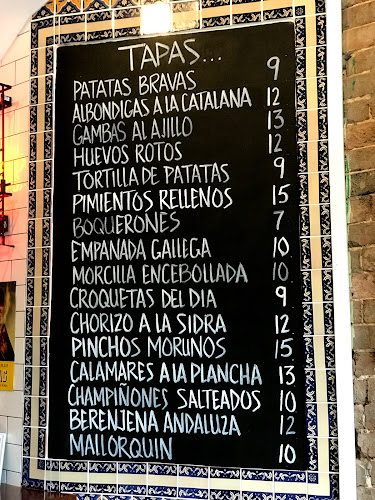 TAPAS...
PATATAS BRAVAS 9
ALBONDICAS A LA CATALANA 12
GAMBAS AL AJILLO 13
HUEVOS ROTOS 12
TORTILLA DE PATATAS 9
PIMIENTOS RELLENOS 15
BOQUERONES 7
EMPANADA GALLEGA 10
MORCILLA ENCEBOLLADA 10
CROQUETAS DEL DIA 9
CHORIZO A LA SIDRA 12
PINCHOS MORUNOS 15
CALAMARES A LA PLANCHA 13
CHAMPIÑONES SALTEADOS 10
BERENJENA ANDALUZA 12
MALLORQUIN 10